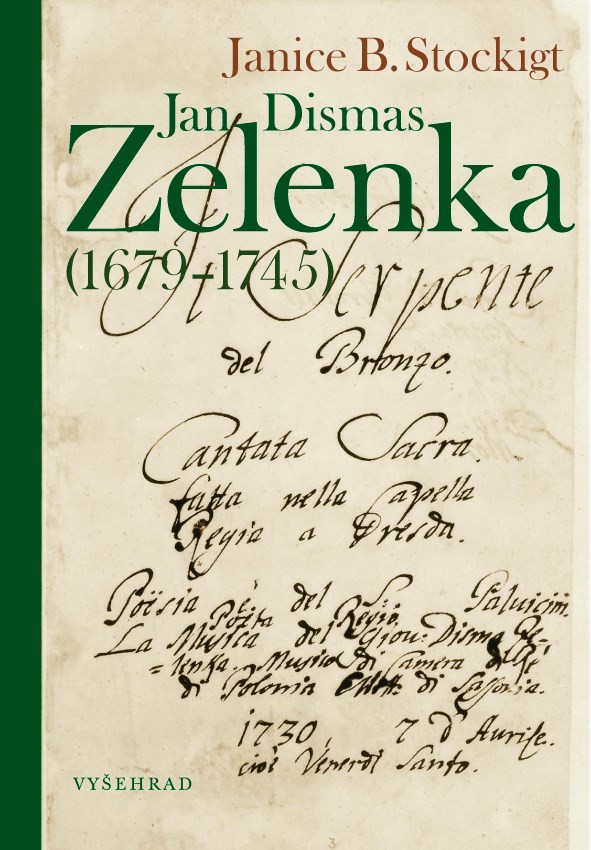 Janice B. Stockigt
Jan Dismas
Zelenka
(1679–1745)
Il Serpente
del Bronzo.
Cantata Sacra.
fatta nella Capella
Regia a Dresda.
Poësia è del S. Palvicini.
Poëta Regio.
La Musica del Giov: Disma Ze-
=lenka. Musico di Camera del Rè
di Polonia Elett: di Sassonia.
1730, 7 d'Aurile.
cioè Venerdi Santo.
VYŠEHRAD
3